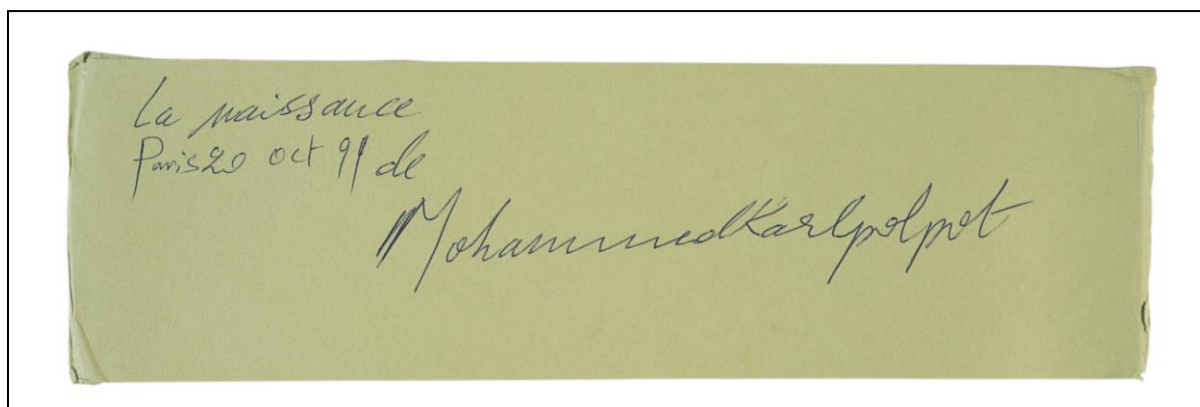 La naissance
Paris 20 oct 91 de
MohammedKarlpolpot